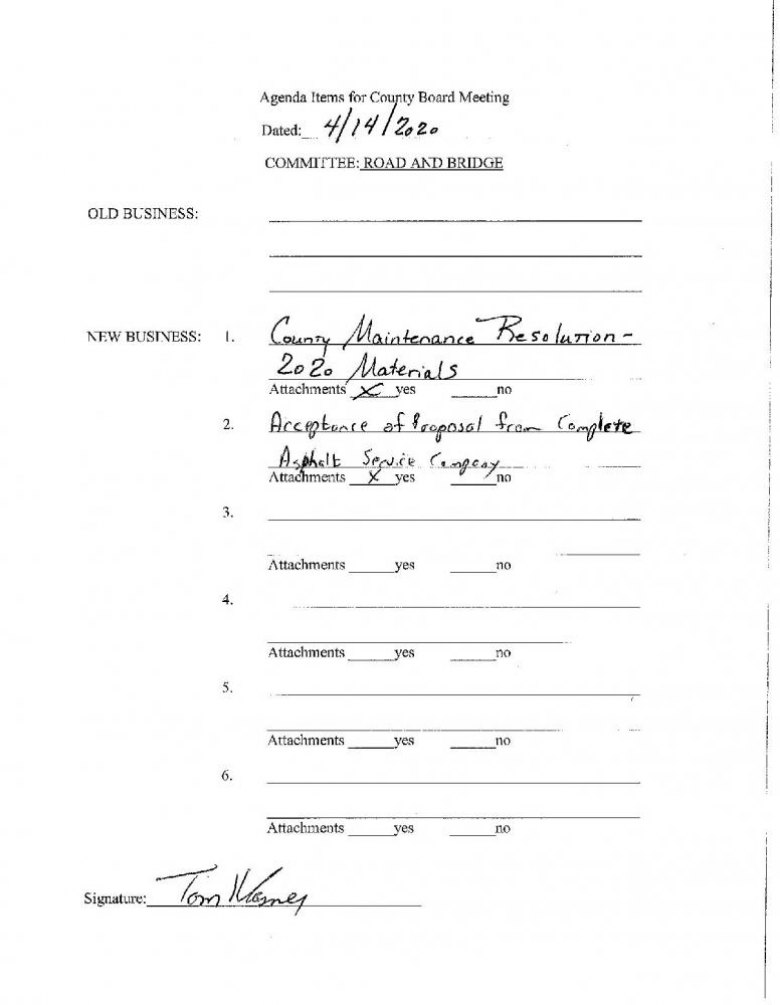 Agenda Items for County Board Meeting
Dated: 4/14/2020
COMMITTEE: ROAD AND BRIDGE
OLD BUSINESS:
NEW BUSINESS: 1. County Maintenance Resolution -
2020 Materials
Attachments X yes no
2. Acceptance of Proposal from Complete
Asphalt Service Company
Attachments X yes no
3.
Attachments yes no
4.
Attachments yes no
5.
Attachments yes no
6.
Attachments yes no
Signature: Tom